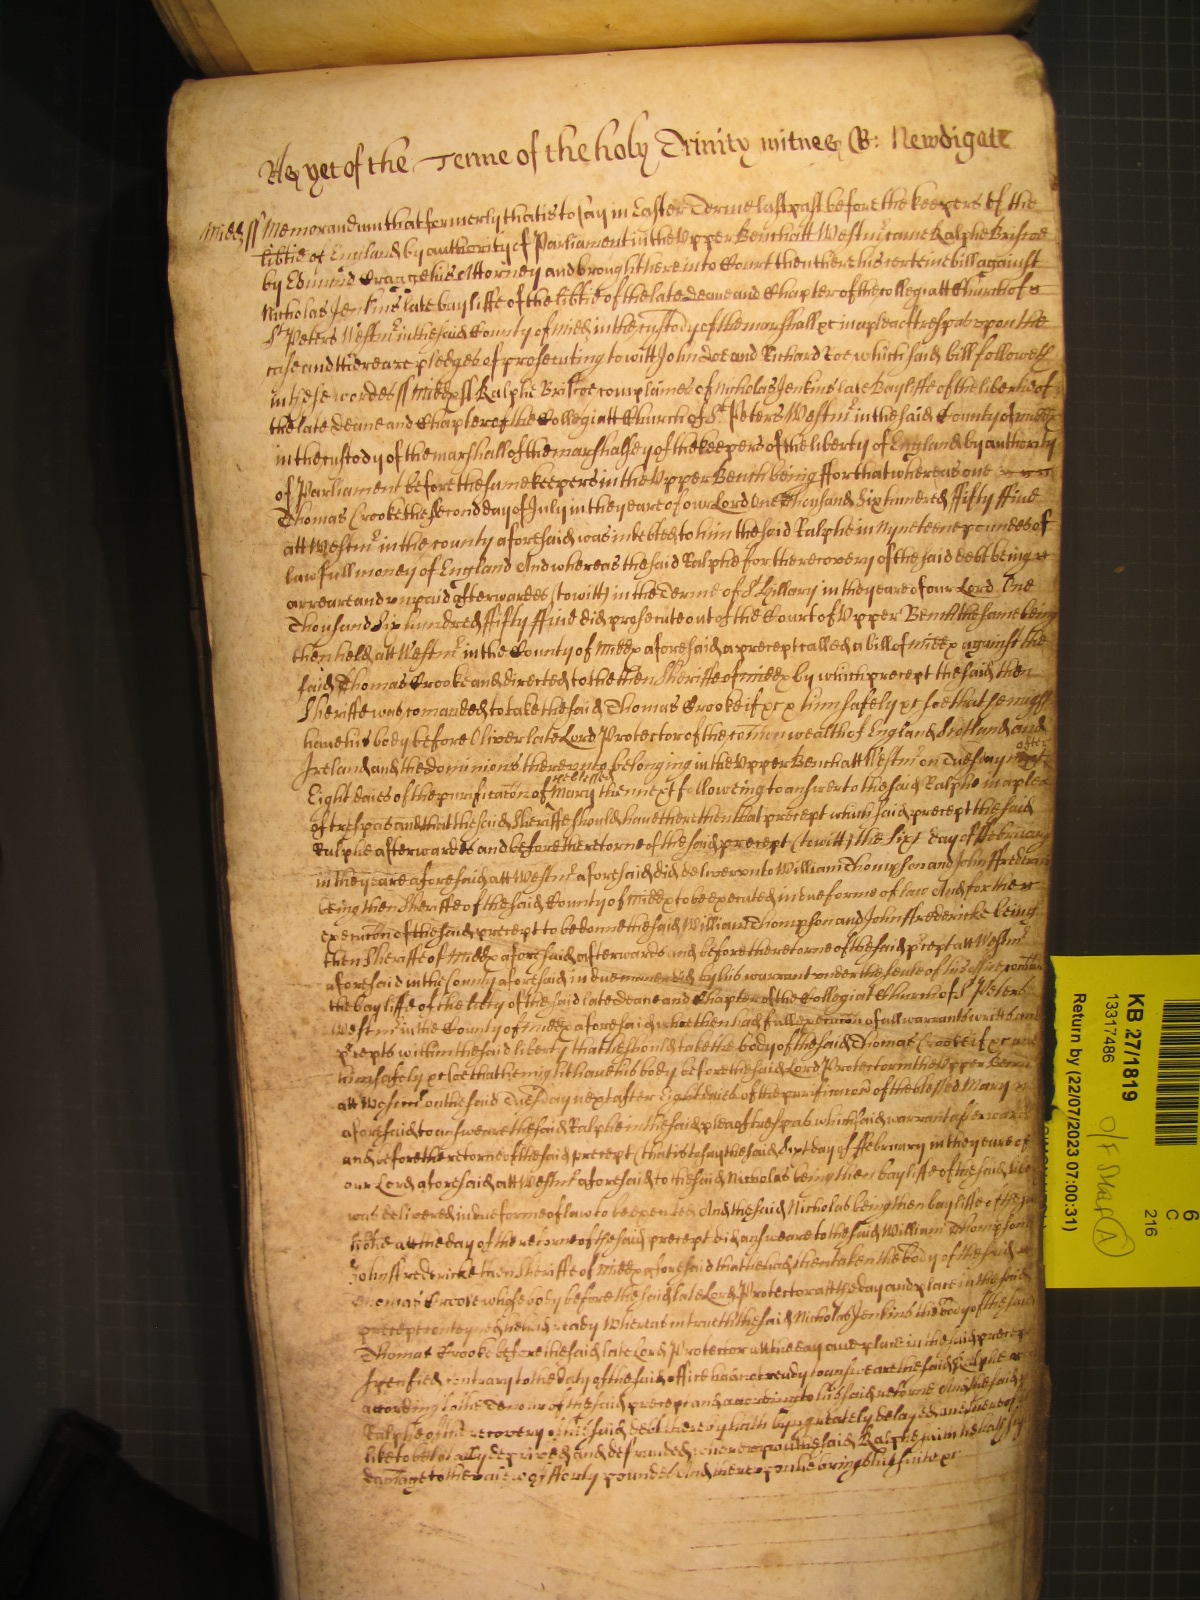 As yet of the Terme of the holy Trinity witnes R: Newdigate
Midd ss Memorandum that formerly that is to say in Easter Terme last past before the keepers of the
libtie of England by authority of Parliament in the Upper Bench att Westmr came Ralphe Briscoe
by Edmund Cragge his Attorney and brought here into Court then there his certeine bill against
Nicholas Jenkins late bayliffe of the libtie of the late deane and Chapter of the collegiatt Church of
St Peters Westmr in the said County of Midd in the custody of the marshall &c in a plea of trespas upon the
case and there are pledges of prosecuting to witt John Doe and Richard Roe which said bill followeth
in these wordes ss Middx ss Ralphe Briscoe complaines of Nicholas Jenkins late Bayliffe of the libertie of
the late deane and Chapter of the Collegiatt Church of St Peters Westmr in the said County of Middx
in the custody of the marshall of the marshalsey of the keepers of the liberty of England by authority
of Parliament before the same keepers in the Upper Bench being ffor that whereas one
Thomas Crooke the second day of July in the yeare of our Lord One Thousand Six hundred ffifty ffive
att Westmr in the county aforesaid was indebted to him the said Ralphe in Nyneteene poundes of
lawfull money of England And whereas the said Ralphe for the recovery of the said debt being
arreare and unpaid afterwardes (to witt) in the Terme of St Hillary in the yeare of our Lord One
Thousand Six hundred ffifty ffive did prosecute out of the Court of Upper Bench the same being
then held att Westmr in the County of Middx aforesaid a precept called a bill of Middx against the
said Thomas Crooke and directed to the then Sheriffe of Middx by which precept the said then
Sheriffe was comanded to take the said Thomas Crooke if &c & him safely &c soe that he might
have his body before Oliver late Lord Protector of the comonwealth of England Scotland and
Ireland and the dominions thereunto belonging in the Upper Bench att Westmr on Tuesday next after
Eight daies of the purificacon of the blessed Mary then next followeing to answer to the said Ralphe in a plea
of trespas and that the said Sheriffe should have there then that precept which said precept the said
Ralphe afterwardes and before the retorne of the said precept (to witt) the Sixt day of February
in the yeare aforesaid att Westmr aforesaid did deliver unto William Thompson and John ffredericke
being then Sheriffe of the said County of Middx to be executed in due forme of law And for the
execucon of the said precept to be donne the said William Thompson and John ffredericke being
then Sheriffe of Middx aforesaid afterwards and before the retorne of the said p'cept att Westmr
aforesaid in the County aforesaid in due manner did by his warrant under the seale of his office
the bayliffe of the libty of the said late deane and Chapter of the Collegiat Church of St Peters
Westmr in the County of Middx aforesaid who then had full execucon of all warrants writts and
p'cepts within the said liberty that he should take the body of the said Thomas Crooke if &c and
him safely &c soe that he might have his body before the said Lord Protector in the Upper Bench
att Westmr on the said Tuesday next after Eight daies of the purificacon of the blessed Mary
aforesaid to answeare the said Ralphe in the said plea of trespas which said warrant afterwards
and before the retorne of the said precept (that is to say the said Sixt day of ffebruary in the yeare of
our Lord aforesaid att Westmr aforesaid to the said Nicholas being then bayliffe of the said
was delivered in due forme of law to be executed And the said Nicholas being then bayliffe of the
libtie att the day of the retorne of the said precept did answeare to the said William Thompson
John ffredericke then Sheriffe of Middx aforesaid that he had then taken the body of the said
Thomas Crooke whose body before the said late Lord Protector att the day and place in the said
precept conteyned he had ready Whereas in truth the said Nicholas Jenkins the body of the said
Thomas Crooke before the said late Lord Protector att the day and place in the said precept
specified contrary to the duty of the said office had not ready to answeare the said Ralphe
according to the Tenour of the said precept and according to his said retorne And the said
Ralphe of the recovery of his said debt thereby hath byn greately delayed and thereof
like to be totally deprived and defrauded whereupon the said Ralphe saith he hath
damage to the value of fforty poundes And thereupon he brings his suite &c
KB 27/1819
13317486
O/F Star A
Return by (22/07/2023 07:00:31)
6
C
216